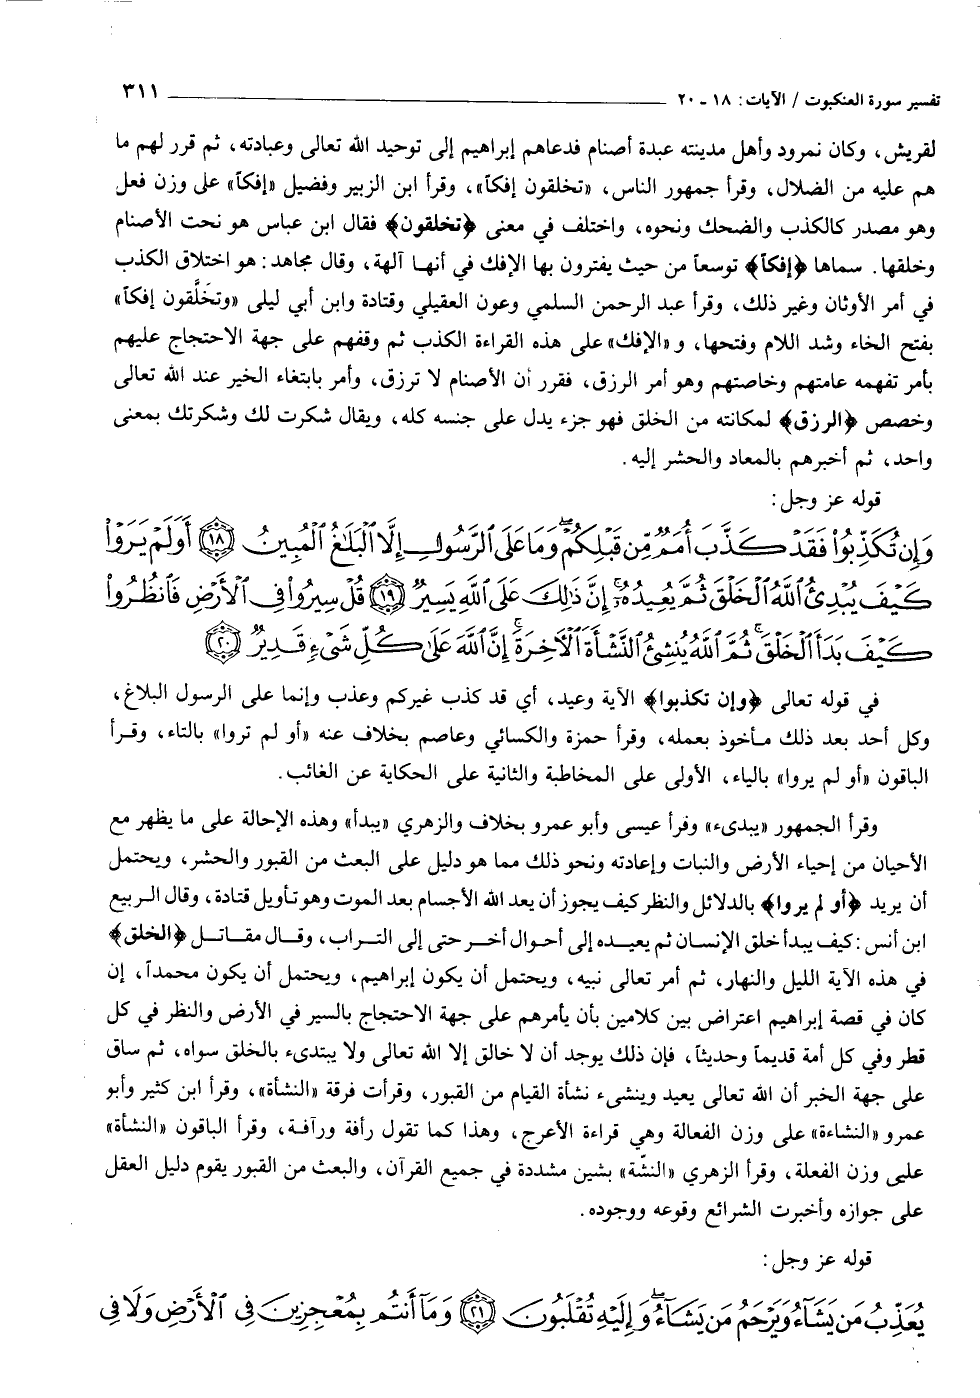 تفسير سورة العنكبوت / الآيات: ١٨ - ٢٠ ٣١١
لقريش، وكان نمرود وأهل مدينته عبدة أصنام فدعاهم إبراهيم إلى توحيد الله تعالى وعبادته، ثم قرر لهم ما
هم عليه من الضلال، وقرأ جمهور الناس، «تخلقون إفكاً»، وقرأ ابن الزبير وفضيل «إفكاً» على وزن فعل
وهو مصدر كالكذب والضحك ونحوه، واختلف في معنى ﴿تخلقون﴾ فقال ابن عباس هو نحت الأصنام
وخلقها. سماها ﴿إفكاً﴾ توسعاً من حيث يفترون بها الإفك في أنها آلهة، وقال مجاهد: هو اختلاق الكذب
في أمر الأوثان وغير ذلك، وقرأ عبد الرحمن السلمي وعون العقيلي وقتادة وابن أبي ليلى «وتخَلَّقون إفكاً»
بفتح الخاء وشد اللام وفتحها، و«الإفك» على هذه القراءة الكذب ثم وقفهم على جهة الاحتجاج عليهم
بأمر تفهمه عامتهم وخاصتهم وهو أمر الرزق، فقرر أن الأصنام لا ترزق، وأمر بابتغاء الخير عند الله تعالى
وخصص ﴿الرزق﴾ لمكانته من الخلق فهو جزء يدل على جنسه كله، ويقال شكرت لك وشكرتك بمعنى
واحد، ثم أخبرهم بالمعاد والحشر إليه.
قوله عز وجل:
وَإِن تُكَذِّبُوا۟ فَقَدْ كَذَّبَ أُمَمٌ مِّن قَبْلِكُمْ ۖ وَمَا عَلَى ٱلرَّسُولِ إِلَّا ٱلْبَلَٰغُ ٱلْمُبِينُ ﴿١٨﴾ أَوَلَمْ يَرَوْا۟
كَيْفَ يُبْدِئُ ٱللَّهُ ٱلْخَلْقَ ثُمَّ يُعِيدُهُۥٓ ۚ إِنَّ ذَٰلِكَ عَلَى ٱللَّهِ يَسِيرٌ ﴿١٩﴾ قُلْ سِيرُوا۟ فِى ٱلْأَرْضِ فَٱنظُرُوا۟
كَيْفَ بَدَأَ ٱلْخَلْقَ ۚ ثُمَّ ٱللَّهُ يُنشِئُ ٱلنَّشْأَةَ ٱلْـَٔاخِرَةَ ۚ إِنَّ ٱللَّهَ عَلَىٰ كُلِّ شَىْءٍ قَدِيرٌ ﴿٢٠﴾
في قوله تعالى ﴿وإن تكذبوا﴾ الآية وعيد، أي قد كذب غيركم وعذب وإنما على الرسول البلاغ،
وكل أحد بعد ذلك مأخوذ بعمله، وقرأ حمزة والكسائي وعاصم بخلاف عنه «أو لم تروا» بالتاء، وقرأ
الباقون «أو لم يروا» بالياء، الأولى على المخاطبة والثانية على الحكاية عن الغائب.
وقرأ الجمهور «يبدىء» وفرأ عيسى وأبو عمرو بخلاف والزهري «يبدأ» وهذه الإحالة على ما يظهر مع
الأحيان من إحياء الأرض والنبات وإعادته ونحو ذلك مما هو دليل على البعث من القبور والحشر، ويحتمل
أن يريد ﴿أو لم يروا﴾ بالدلائل والنظر كيف يجوز أن يعد الله الأجسام بعد الموت وهو تأويل قتادة، وقال الربيع
ابن أنس: كيف يبدأ خلق الإنسان ثم يعيده إلى أحوال أخر حتى إلى التراب، وقال مقاتل ﴿الخلق﴾
في هذه الآية الليل والنهار، ثم أمر تعالى نبيه، ويحتمل أن يكون إبراهيم، ويحتمل أن يكون محمداً، إن
كان في قصة إبراهيم اعتراض بين كلامين بأن يأمرهم على جهة الاحتجاج بالسير في الأرض والنظر في كل
قطر وفي كل أمة قديماً وحديثاً، فإن ذلك يوجد أن لا خالق إلا الله تعالى ولا يبتدىء بالخلق سواه، ثم ساق
على جهة الخبر أن الله تعالى يعيد وينشىء نشأة القيام من القبور، وقرأت فرقة «النشأة»، وقرأ ابن كثير وأبو
عمرو «النشاءة» على وزن الفعالة وهي قراءة الأعرج، وهذا كما تقول رأفة ورآفة، وقرأ الباقون «النشأة»
على وزن الفعلة، وقرأ الزهري «النشّة» بشين مشددة في جميع القرآن، والبعث من القبور يقوم دليل العقل
على جوازه وأخبرت الشرائع وقوعه ووجوده.
قوله عز وجل:
يُعَذِّبُ مَن يَشَآءُ وَيَرْحَمُ مَن يَشَآءُ ۖ وَإِلَيْهِ تُقْلَبُونَ ﴿٢١﴾ وَمَآ أَنتُم بِمُعْجِزِينَ فِى ٱلْأَرْضِ وَلَا فِى